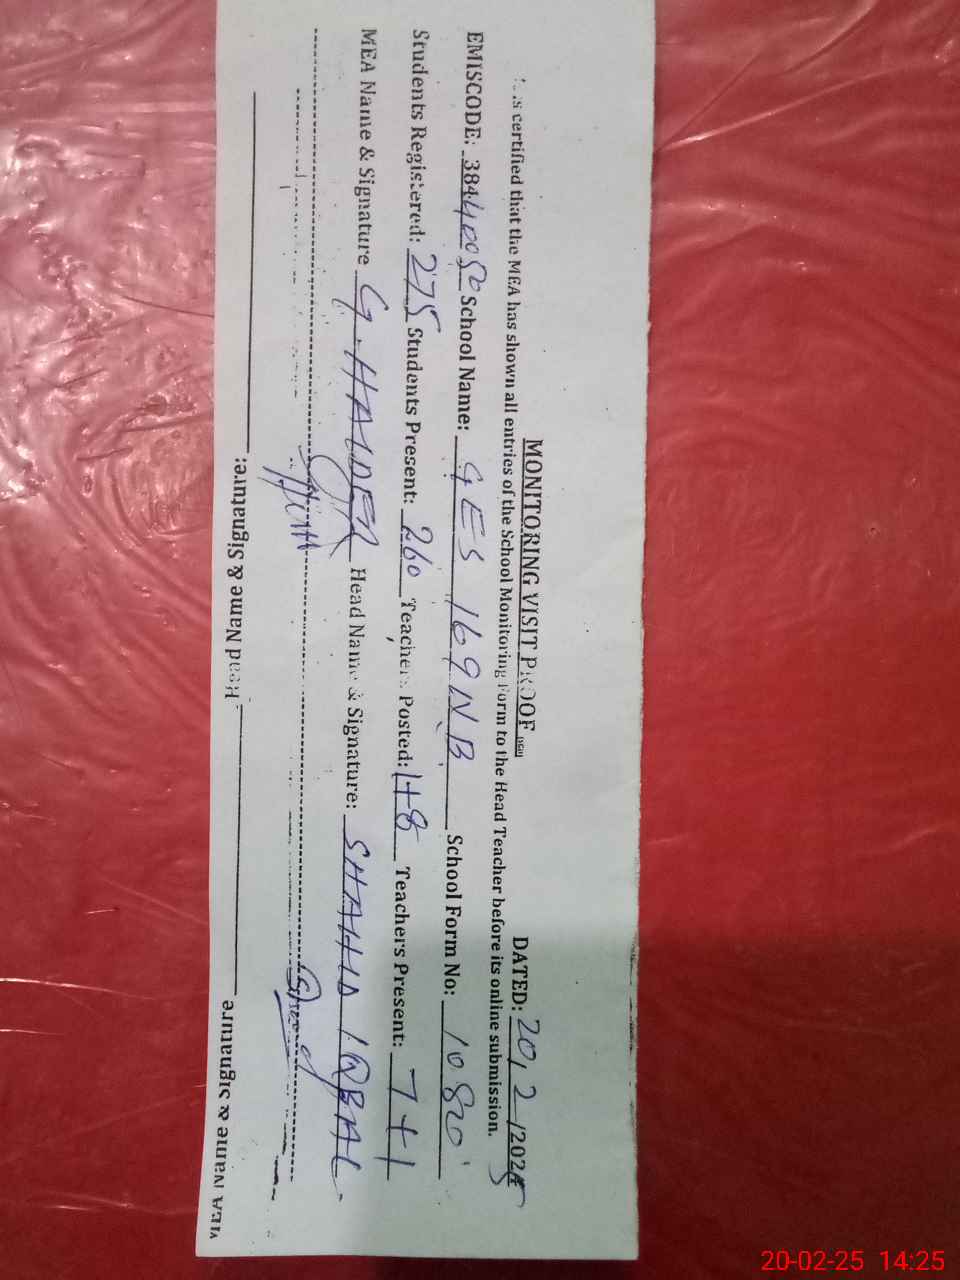 MONITORING VISIT PROOF DATED: 20/2/2025
is certified that the MEA has shown all entries of the School Monitoring Form to the Head Teacher before its online submission.
EMISCODE: 38440050 School Name: GES 169NB School Form No: 1080
Students Registered: 275 Students Present: 260 Teachers Posted: 1+8 Teachers Present: 7+1
MEA Name & Signature G. HAIDER Head Name & Signature: SHAHID IQBAL
MEA Name & Signature Head Name & Signature:
20-02-25 14:25